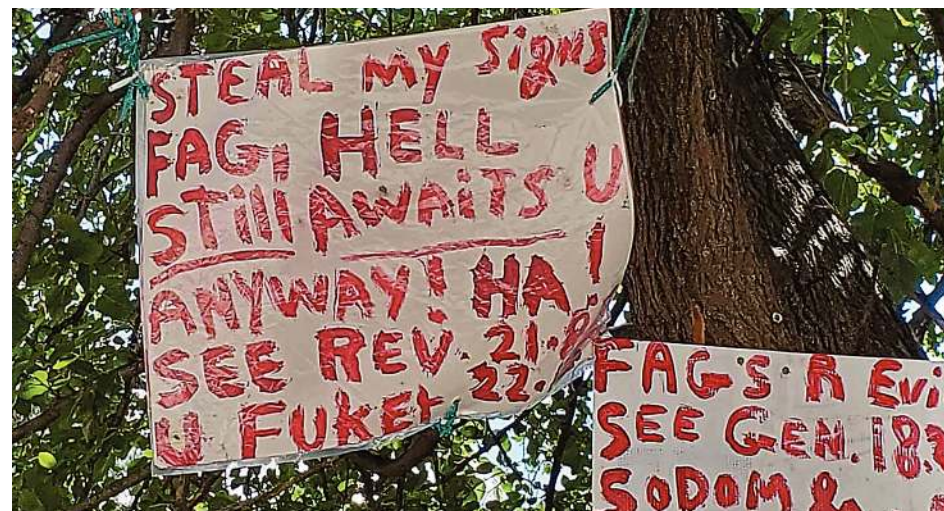 STEAL MY Signs
FAG, HELL
STill AWAiTS U
ANYWAY! HA!
SEE REV. 21.8
22.
U FUKER
FAGS R Evi
SEE GEN. 18.
SODOM &